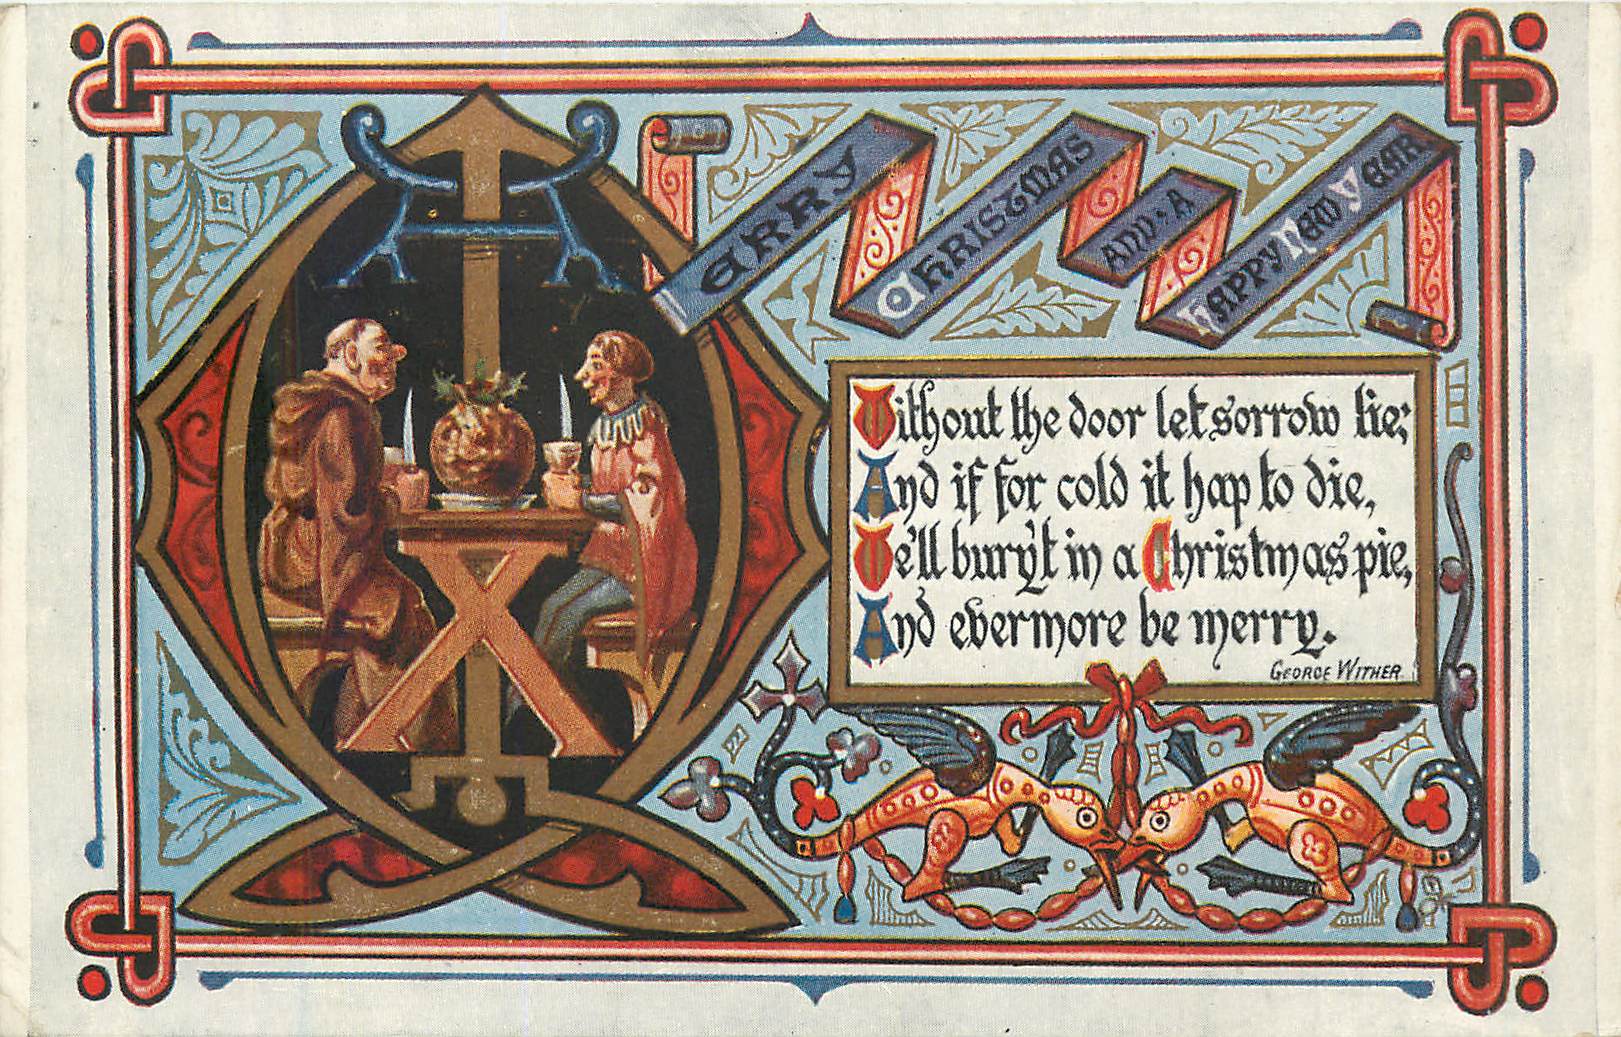 MERRY
CHRISTMAS
AND • A
HAPPY NEW YEAR
Without the door let sorrow lie;
And if for cold it hap to die,
We'll bury't in a Christmas pie,
And evermore be merry.
GEORGE WITHER